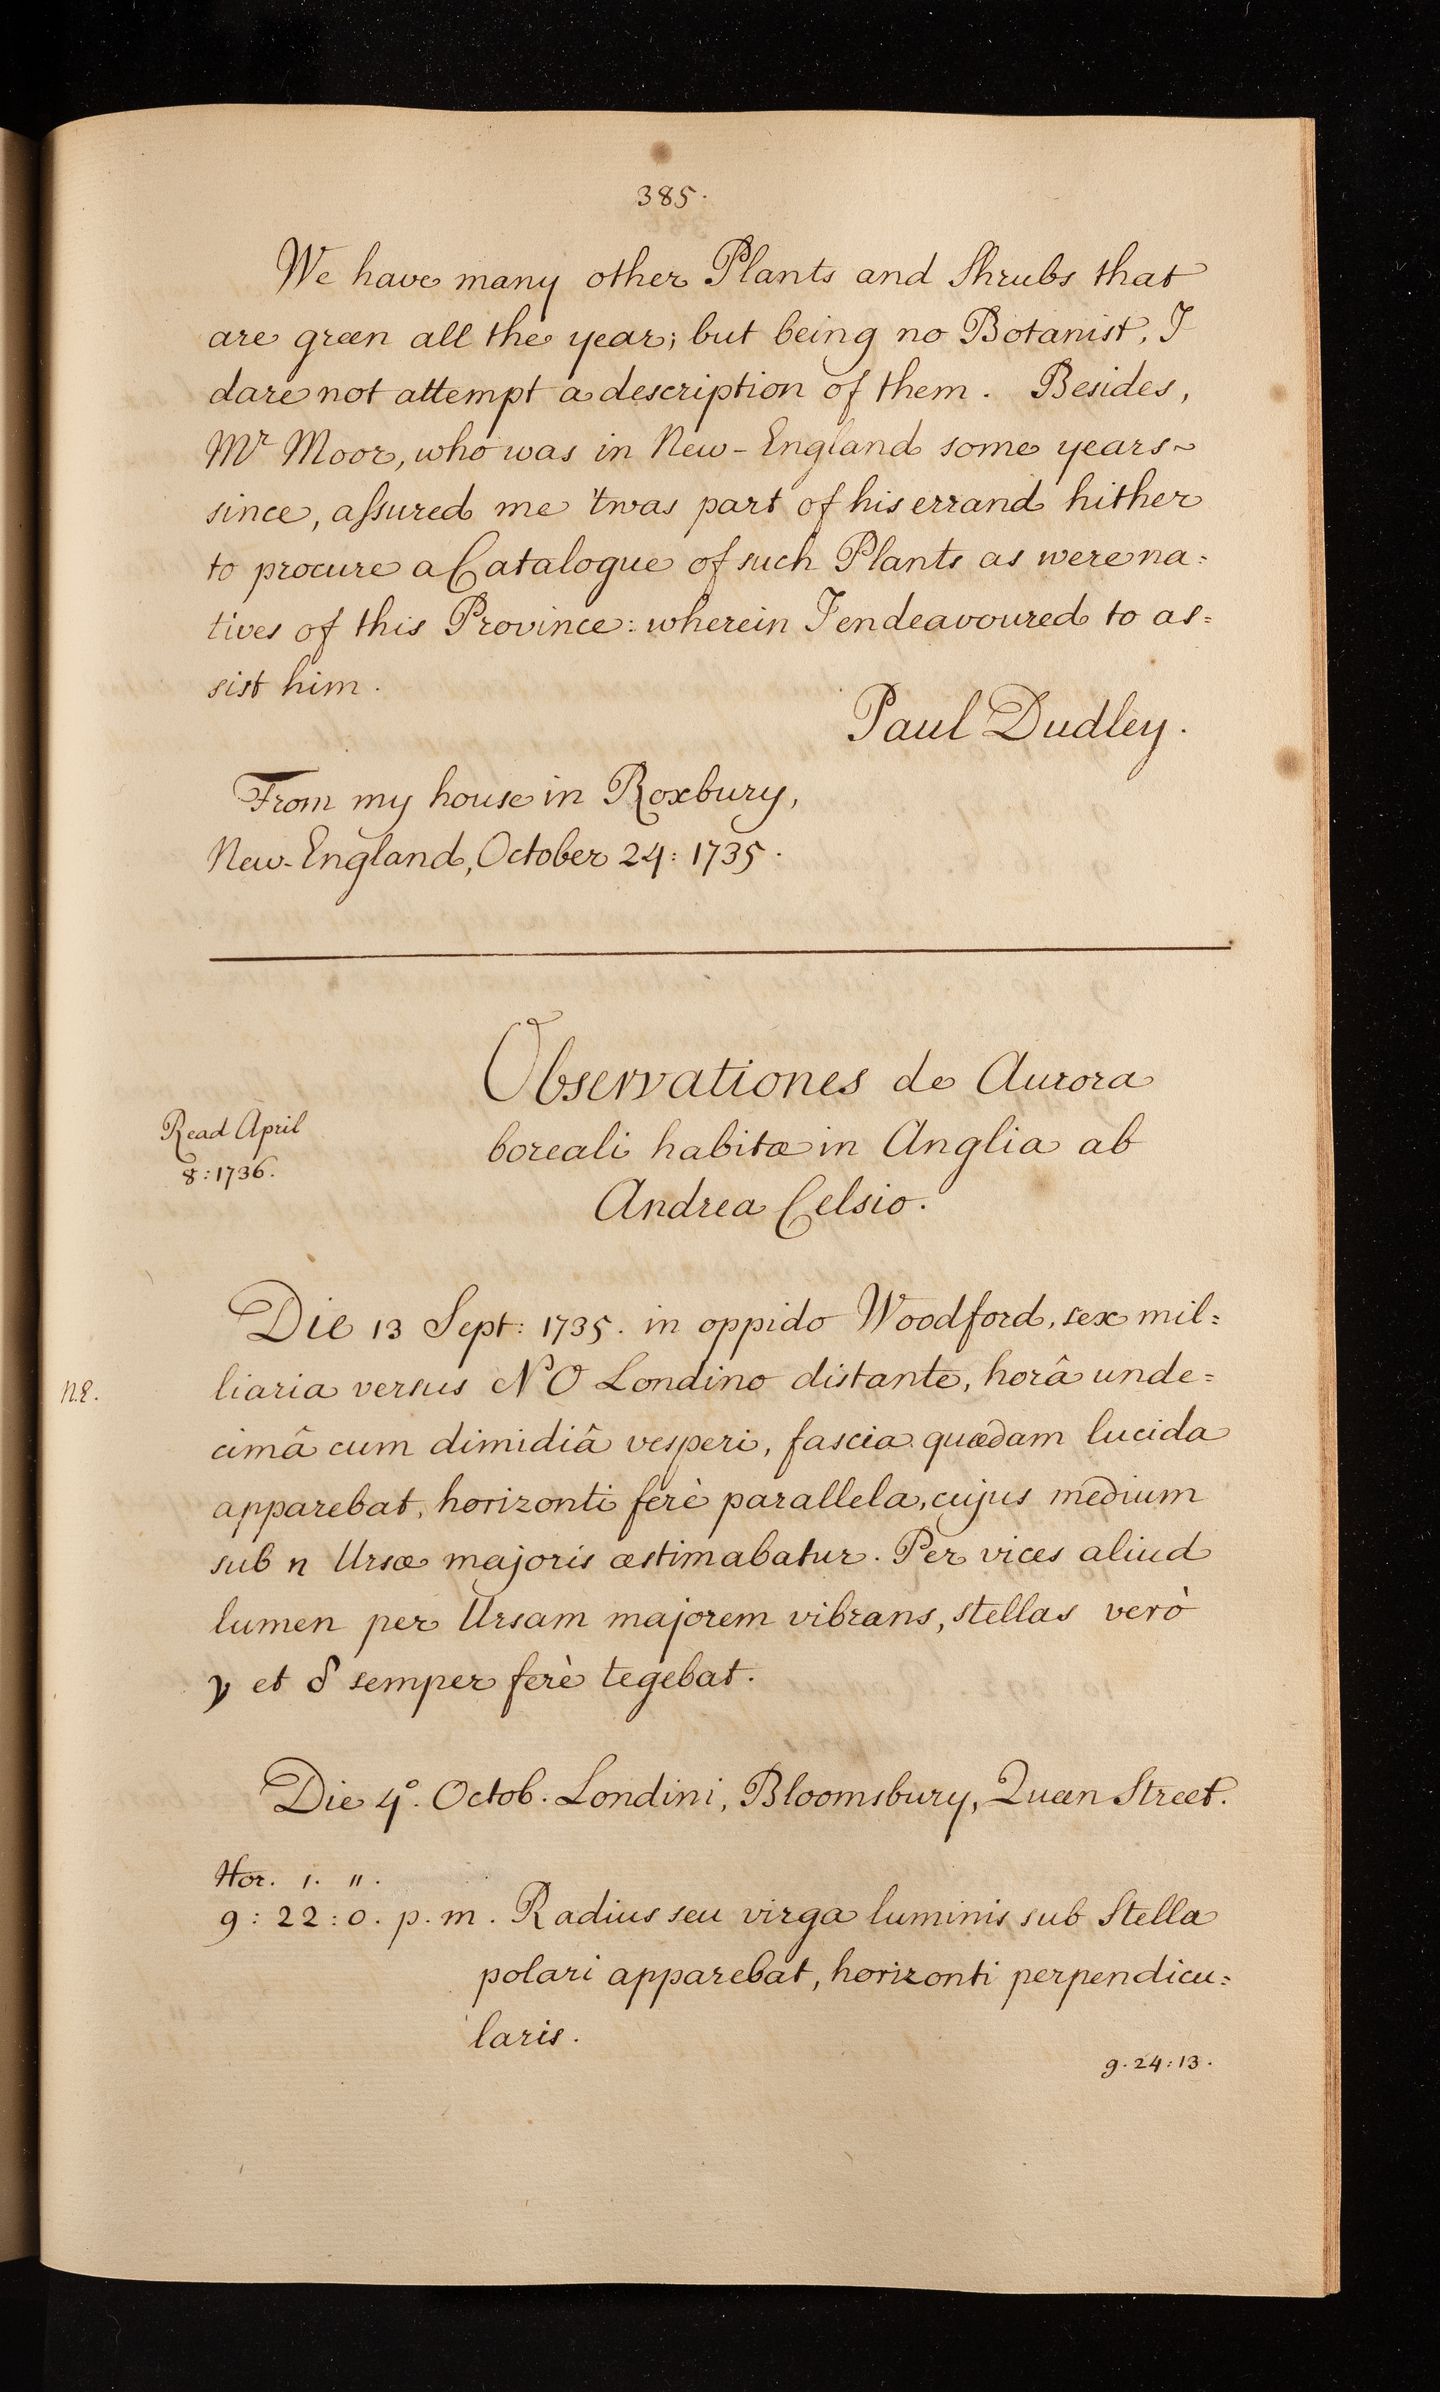 385.
We have many other Plants and Shrubs that
are green all the year; but being no Botanist, I
dare not attempt a description of them. Besides,
Mr Moor, who was in New-England some years~
since, assured me 'twas part of his errand hither
to procure a Catalogue of such Plants as were na=
tives of this Province: wherein I endeavoured to as=
sist him.
Paul Dudley.
From my house in Roxbury,
New-England, October 24: 1735.
Observationes de Aurora
boreali habitæ in Anglia ab
Andrea Celsio.
Read April
8: 1736.
Die 13 Sept: 1735. in oppido Woodford, sex mil=
N.E.
liaria versus NO Londino distante, horâ unde=
cimâ cum dimidiâ vesperi, fascia quædam lucida
apparebat, horizonti ferè parallela, cujus medium
sub η Ursæ majoris æstimabatur. Per vices aliud
lumen per Ursam majorem vibrans, stellas verò
γ et δ semper ferè tegebat.
Die 4º. Octob. Londini, Bloomsbury, Queen Street.
Hor. ı. ıı.
9: 22: 0. p. m. Radius seu virga luminis sub Stella
polari apparebat, horizonti perpendicu=
laris.
9. 24: 13.